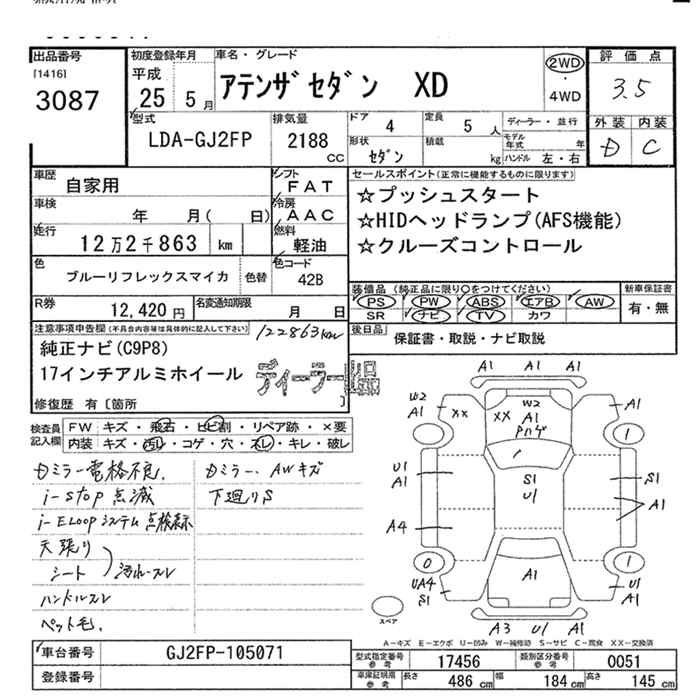 出品番号
[1416]
3087
初度登録年月
平成
25 5月
車名・グレード
アテンザセダン XD
2WD
・
4WD
評価点
3.5
外装 内装
D C
型式
LDA-GJ2FP
排気量
2188
CC
ドア 4
定員 5 人
形状 セダン
積載 kg
ディーラー・並行
モデル年式 年
ハンドル 左・右
車歴 自家用
シフト FAT
車検 年 月( 日)
冷房 AAC
走行 12万2千863 km
燃料 軽油
色 ブルーリフレックスマイカ 色替
色コード 42B
R券 12,420円
名変通知期限 月 日
セールスポイント(正常に機能するものに限ります)
☆プッシュスタート
☆HIDヘッドランプ(AFS機能)
☆クルーズコントロール
装備品 (純正品に限り○をつけてください)
PS PW ABS エアB AW
SR ナビ TV カワ
新車保証書
有・無
後日品 保証書・取説・ナビ取説
注意事項申告欄(不具合内容等は具体的に記入して下さい)
122863km
純正ナビ(C9P8)
17インチアルミホイール
ディーラー出品
修復歴 有〔箇所 〕
検査員記入欄
FW キズ・飛石・ヒビ割・リペア跡・×要
内装 キズ・汚れ・コゲ・穴・スレ・キレ・破レ
Dミラー電格不良.
i-stop 点滅
i-ELoop システム 点検表示
天張り
シート 汚れ・スレ
ハンドルスレ
ペット毛.
Dミラー、AWキズ
下廻りS
A1 A1 A1
W2
A1
XX
XX
W2
A1
Pハゲ
A1
1
U1
A1
S1
U1
S1
A1
A4
0
1
UA4
S1
A1
U1
A1
A3 U1 A1
スペア
A−キズ E−エクボ U−凹み W−補修跡 S−サビ C−腐食 XX−交換済
車台番号 GJ2FP-105071
登録番号
型式指定番号 参考 17456
類別区分番号 参考 0051
車庫証明用 参考 長さ 486 cm 幅 184 cm 高さ 145 cm